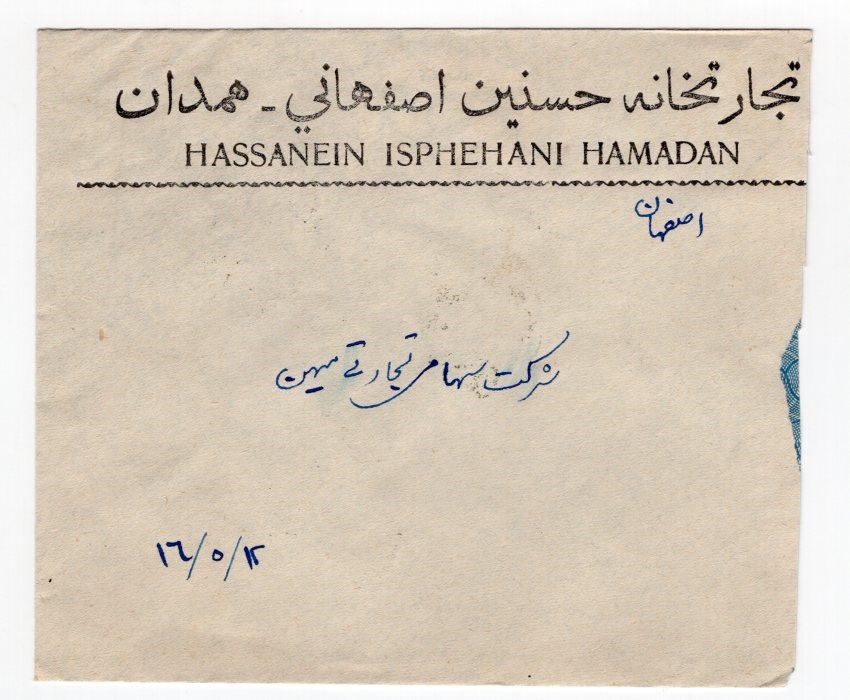 تجارتخانه حسنین اصفهاني ـ همدان
HASSANEIN ISPHEHANI HAMADAN
اصفهان
شرکت سهامی تجارتے میهن
١٦/٥/١٢